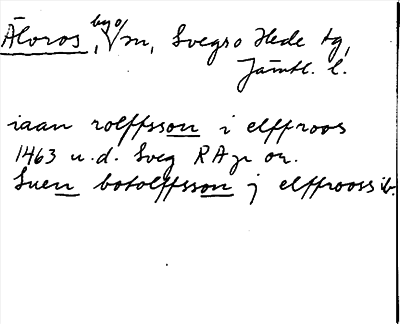 Älvros, by o/ m, Svegs o Hede tg,
Jämtl. l.
iaan rolffsson i elffroos
1463 u.d. Sveg RAp or.
Suen botolffsson j elffrooss ib.